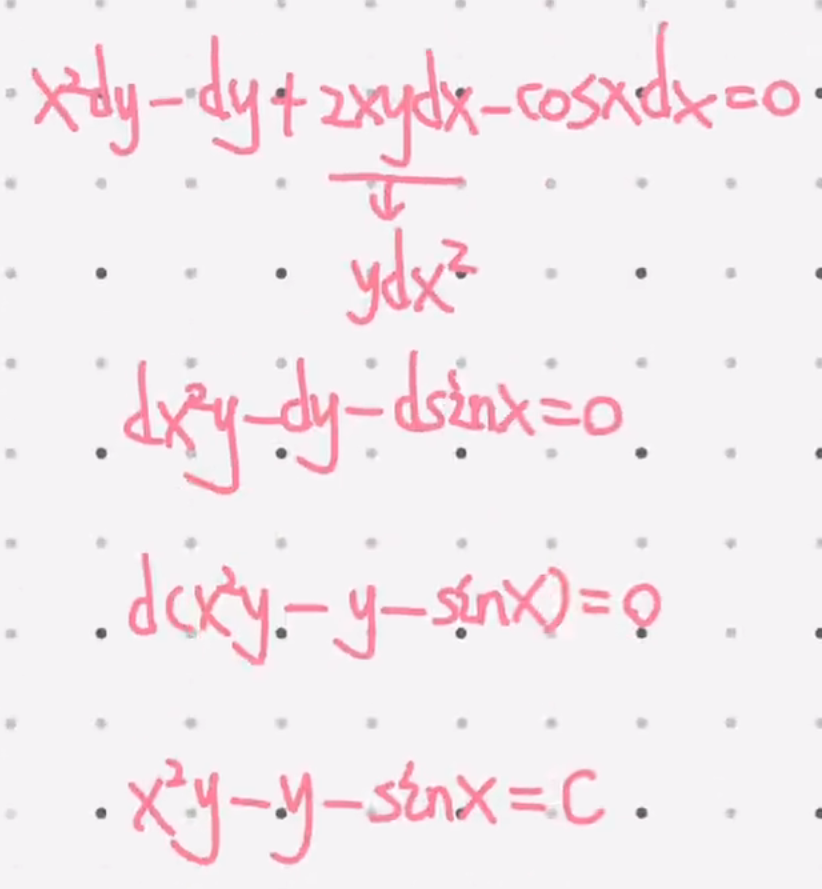 x²dy-dy+2xydx-cosxdx=0
↓
ydx²
dx²y-dy-dsinx=0
d(x²y-y-sinx)=0
x²y-y-sinx=C